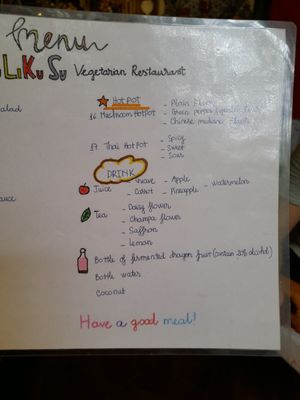 Menu
LiKu Su Vegetarian Restaurant
alad
HOT POT
16. Mushroom Hotpot
- Plain
- Green pepper
- Chinese
17. Thai Hot Pot
- Spicy
- Sweet
- Sour
auce
DRINK
Juice
- Apple
- watermelon
- Carrot
- Pineapple
Tea
- Daisy flower
- Champa flower
- Saffron
- Lemon
Bottle of fermented dragon fruit (contain 20% alcohol)
Bottle water
Coconut
Have a good meal!